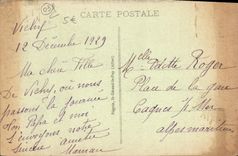 CARTE POSTALE
Vichy
12 Décembre 1929
Ma chère Fille
De Vichy, où nous
passons la journée
Ton Papa et moi
t'envoyons notre
Sincère amitié
Maman
Melle Odette Roger
Place de la gare
Cagnes s/ Mer
Alpes maritimes